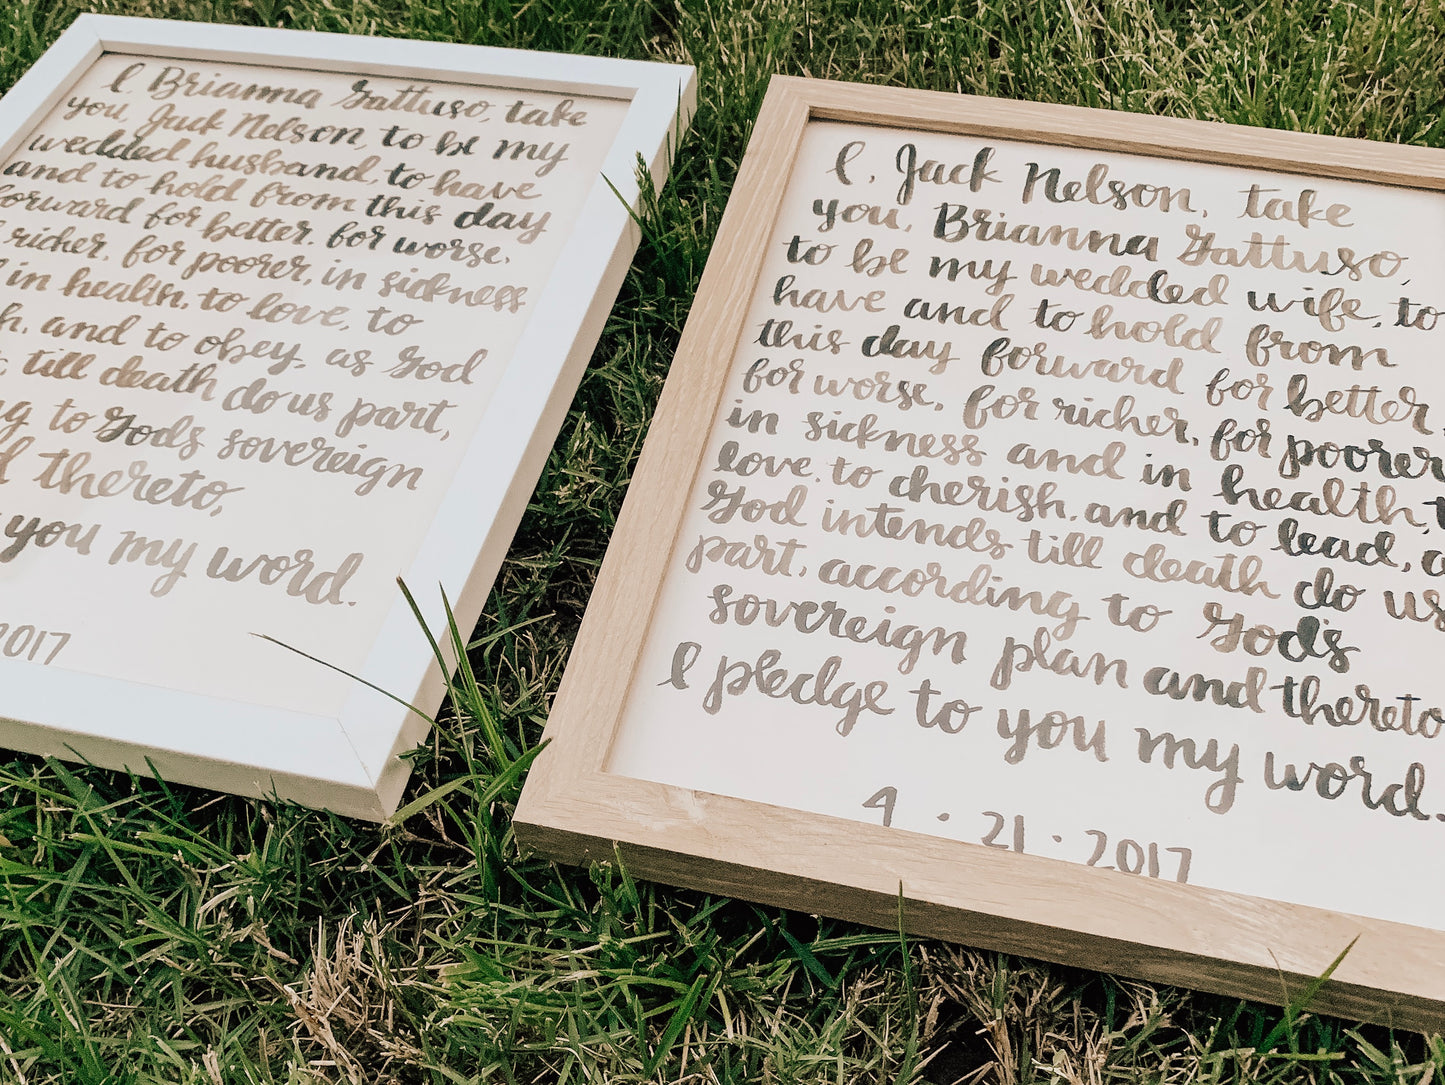 I Brianna Gattuso, take
you, Jack Nelson, to be my
wedded husband, to have
and to hold from this day
forward for better, for worse,
richer, for poorer, in sickness
in health, to love, to
and to obey, as God
till death do us part,
to God's sovereign
thereto,
you my word.
2017
I, Jack Nelson, take
you, Brianna Gattuso,
to be my wedded wife, to
have and to hold from
this day forward for better,
for worse, for richer, for poorer
in sickness and in health,
love, to cherish, and to lead,
God intends till death do us
part, according to God's
sovereign plan and thereto
I pledge to you my word.
4 · 21 · 2017